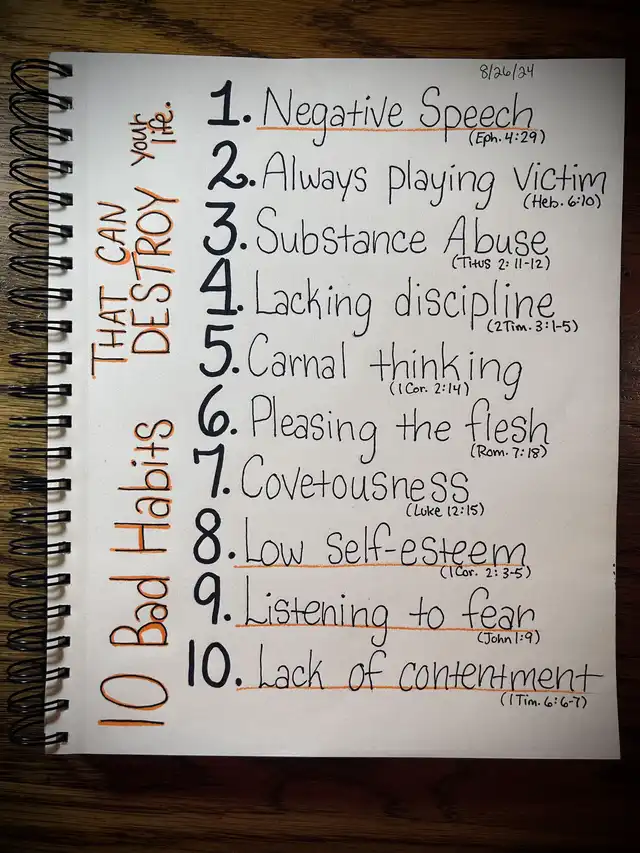 8/26/24
10 Bad Habits
THAT CAN
DESTROY your
life.
1. Negative Speech
(Eph. 4:29)
2. Always playing victim
(Heb. 6:10)
3. Substance Abuse
(Titus 2:11-12)
4. Lacking discipline
(2Tim. 3:1-5)
5. Carnal thinking
(1Cor. 2:14)
6. Pleasing the flesh
(Rom. 7:18)
7. Covetousness
(Luke 12:15)
8. Low self-esteem
(1Cor. 2:3-5)
9. Listening to fear
(John 1:9)
10. Lack of contentment
(1Tim. 6:6-7)